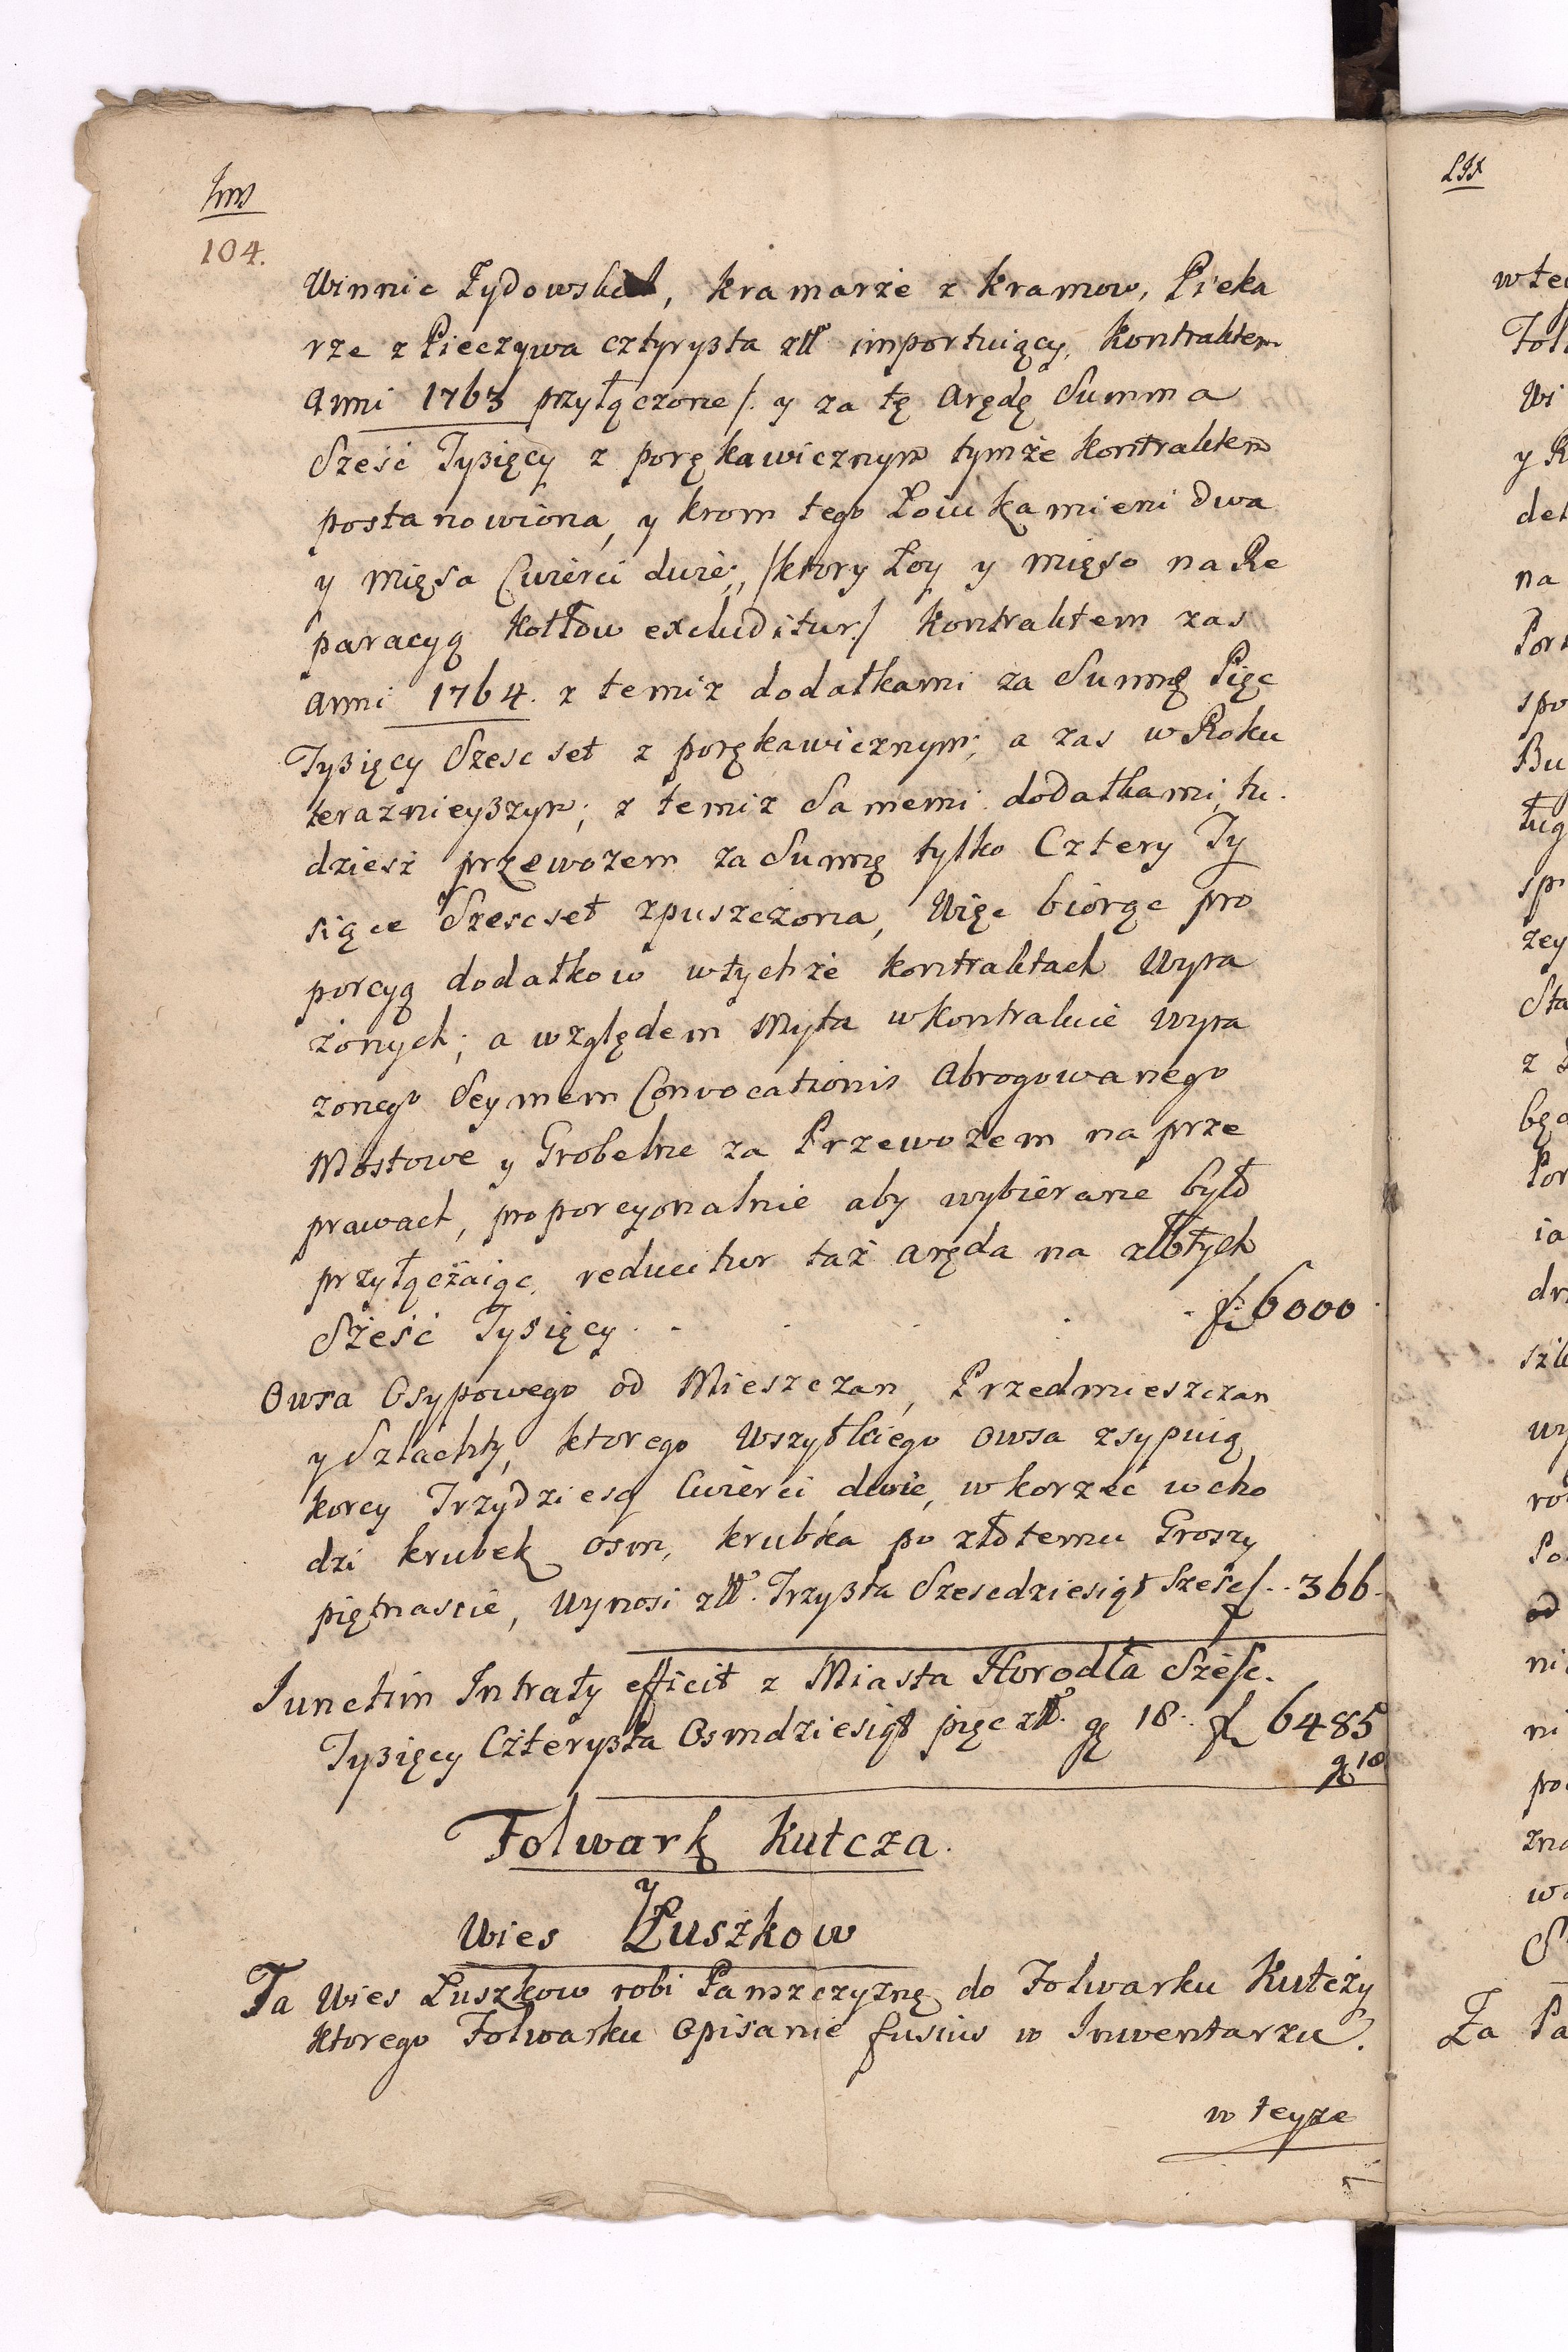 104.
Winnic Żydowskich, kramarże z kramow, Pieka
rze z Pieczywa cztyrysta złł importuiący, Kontraktem
Anni 1763 przyłączone/. y za tę Arędę Summa
Sześć Tysięcy z porękawicznym tymże kontraktem
postanowiona, y krom tego Łoiu kamieni dwa
y mięsa Cwierci dwie, /ktory Łoy y mięso na Re
paracyą Kotłow excluditur/ kontraktem zas
Anni 1764. z temiz dodatkami za Summę Pięc
Tysięcy Szescset z porękawicznym; a zas w Roku
teraznieyszym; z temiz Samemi dodatkami, tu.
dziesz przewozem za Summę tylko Cztery Ty
siące Szescset zpuszczona, Więc biorąc pro
porcyą dodatkow w tychże kontraktach wyra
żonych; a względem Myta w kontrakcie wyra
zonego Seymem Convocationis Abrogowanego
Mostowe y Grobelne za Przewozem na prze
prawach, proporcyonalnie aby wybierane było
przyłączaiąc, reducitur taż aręda na złłotych
Sześć Tysięcy . . . . . f: 6000
Owsa Osypowego od Mieszczan, Przedmieszczan
y Szlachty, ktorego wszytkiego owsa zsypuią
korcy Trzydziesci Cwierci dwie, w korzec wcho
dzi krubek osm, krubka po złłotemu Groszy
piętnascie, wynosi złł. Trzysta Szescdziesiąt Sześć f. 366.
Iunctim Intraty efficit z Miasta Horodła Sześc.
Tysięcy Czterysta Osmdziesiąt pięc złł. gr 18. f 6485
gr 18
Folwark Kutcza.
y
Wies Łuszkow
Ta Wies Łuszkow robi Panszczyznę do Folwarku Kutczy
ktorego Folwarku Opisanie fusius w Inwentarzu.
w teyze